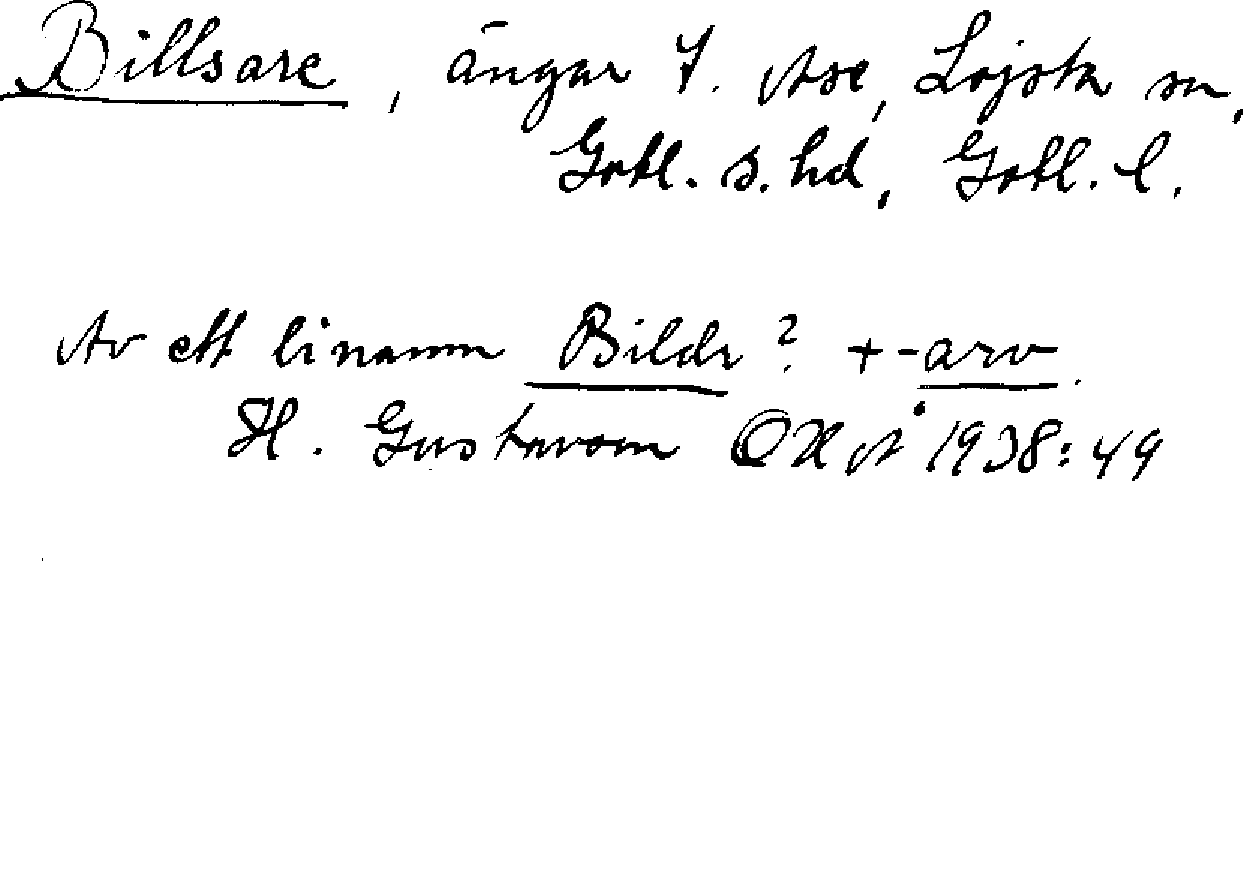 Billsare, ängar t. Ase, Lojsta sn,
Gotl. s. hd, Gotl. l.
Av ett binamn Bildr? + -arv.
H. Gustavson 1938:49